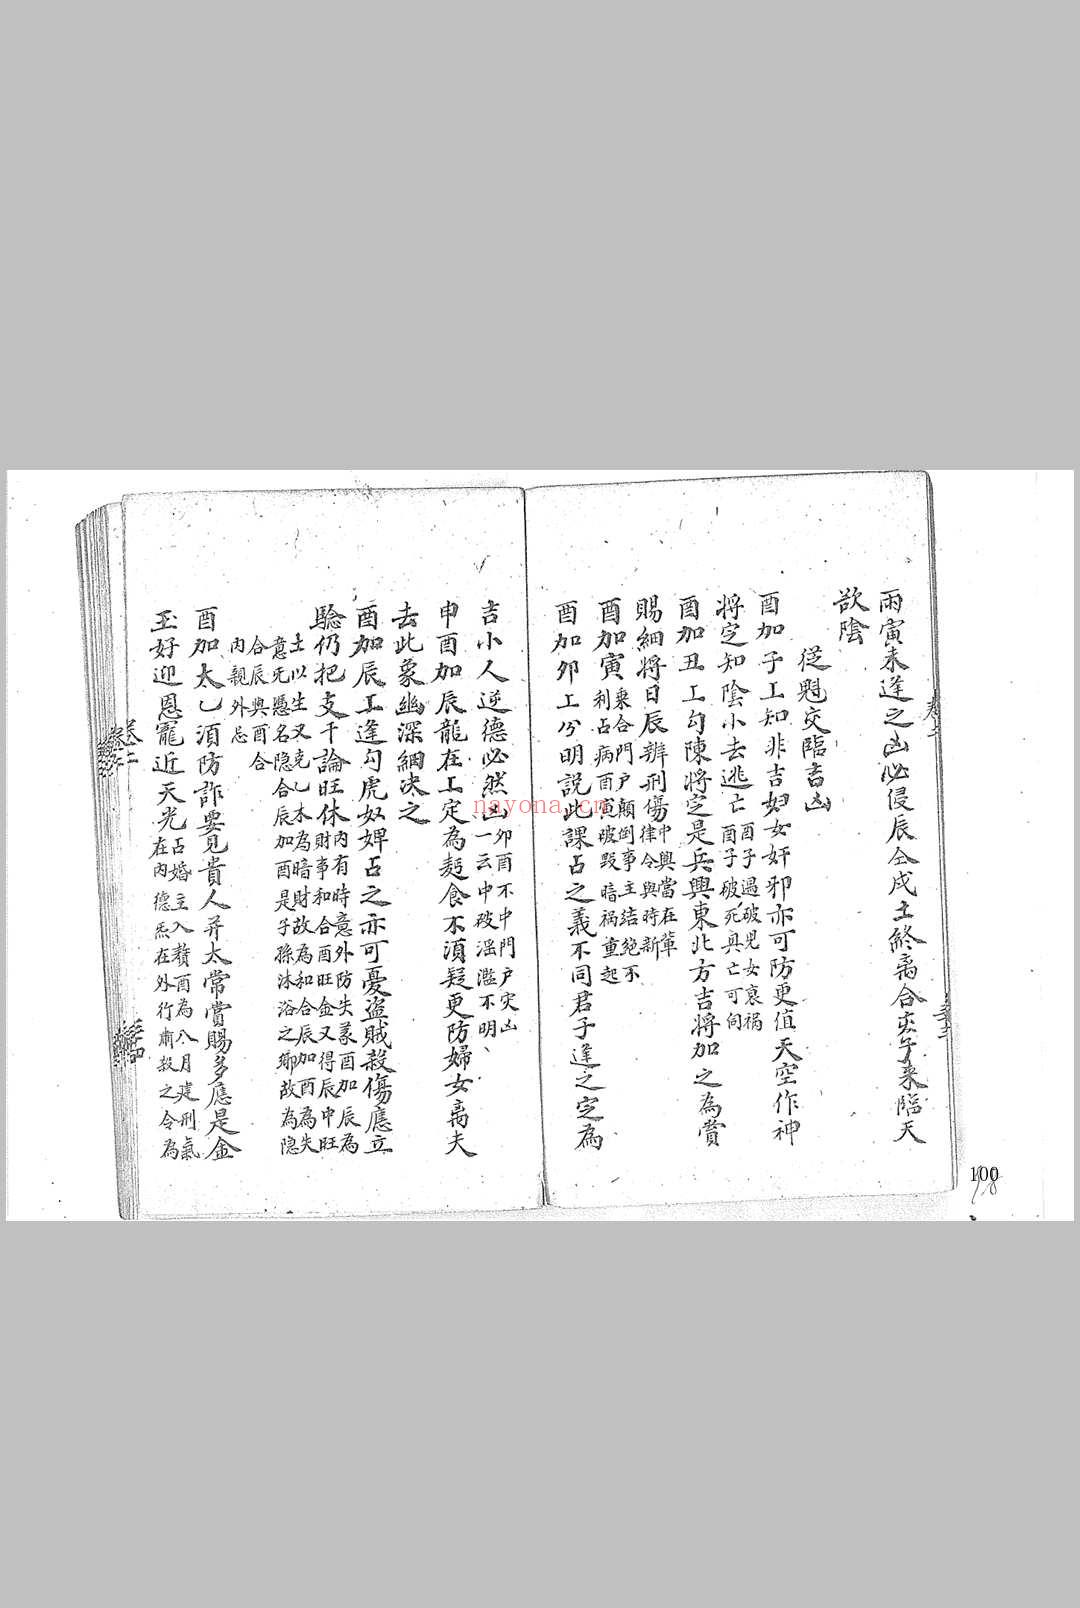 雨寅來逢之凶必侵辰仝戌土終离合亥子来臨天
欲陰
從魁交臨吉凶
酉加子工知非吉妇女奸邪亦可防更值天空作神
将定知陰小去逃亡
酉子過破児女衰禍
酉子破死與亡可伺
酉加丑工勾陳將定是兵興東北方吉將加之為賞
賜細将日辰辨刑傷
中興當在革
律令與時新
酉加寅
乘合門户顛倒事主結絕不
利占病酉寅破毀暗祸重起
酉加卯工兮明説此課占之義不同君子逢之定為
吉小人逆德必然凶
卯酉不中門户灾凶
一云中破滛濫不明
申酉加辰龍在工定為麪食不須疑更防婦女离夫
去此象幽深細决之
酉加辰工逢勾虎奴婢占之亦可憂盗賊殺傷應立
驗仍把支干論旺休
内有時意外防失豪酉加辰為
財事和合酉旺金又得辰中旺
土以生又克乙木為暗財故為和合辰加酉為失
意死憑名隐合辰加酉是子孫沐浴之鄉故為隐
合辰與酉合
内親外忌
酉加太乙須防詐要見貴人并太常賞賜多應是金
玉好迎恩寵近天光
占婚主入贅酉為八月建刑氣
在内德炁在外行肅殺之令為
卷二
卷二
三十三
三十四
nayona.cn
100
98